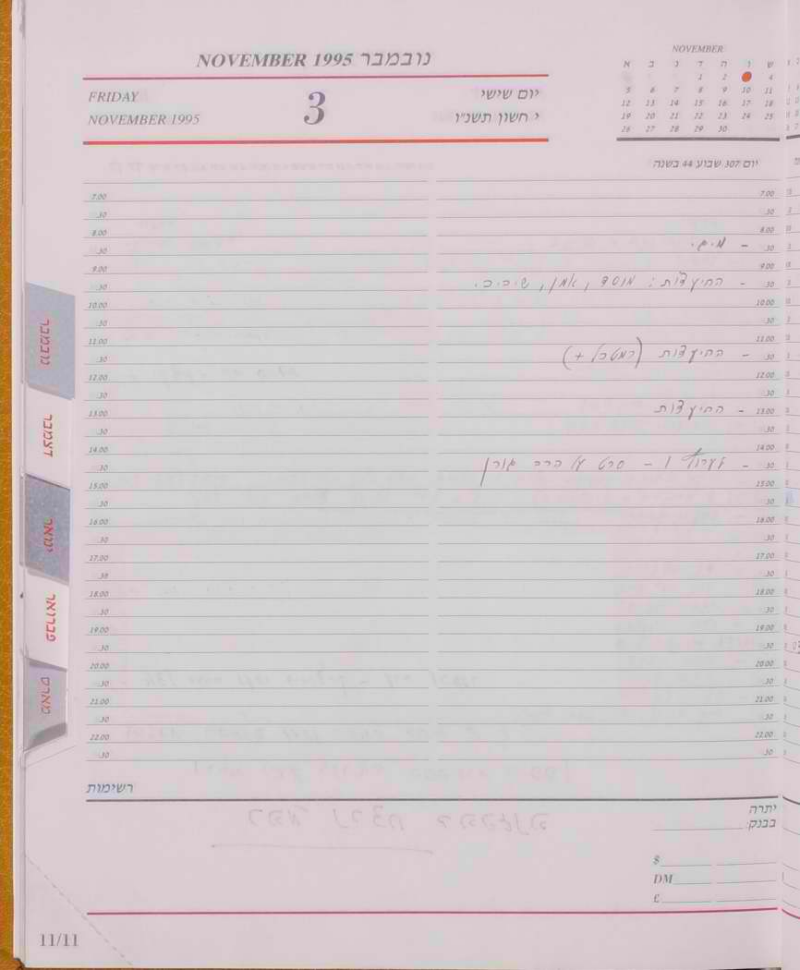 NOVEMBER 1995 נובמבר
NOVEMBER
א ב ג ד ה ו ש
1 2 4
5 6 7 8 9 10 11
12 13 14 15 16 17 18
19 20 21 22 23 24 25
26 27 28 29 30
FRIDAY 3 יום שישי
NOVEMBER 1995 י חשון תשנ"ו
יום 307 שבוע 44 בשנה
7.00 7.00
.30 .30
8.00 8.00
.30 .30 -
9.00 9.00
.30 .30 - התיעצות: מוסד, אמן,
10.00 10.00
.30 .30
11.00 11.00
.30 .30 - התיעצות (רמטכל +)
12.00 12.00
.30 .30
13.00 13.00 - התיעצות
.30 .30
14.00 14.00
.30 .30 - ערוץ 1 - סרט על
15.00 15.00
.30 .30
16.00 16.00
.30 .30
17.00 17.00
.30 .30
18.00 18.00
.30 .30
19.00 19.00
.30 .30
20.00 20.00
.30 .30
21.00 21.00
.30 .30
22.00 22.00
.30 .30
רשימות
יתרה
בבנק:
$
DM
£
11/11
נובמבר
דצמבר
ינואר
פברואר
מארס